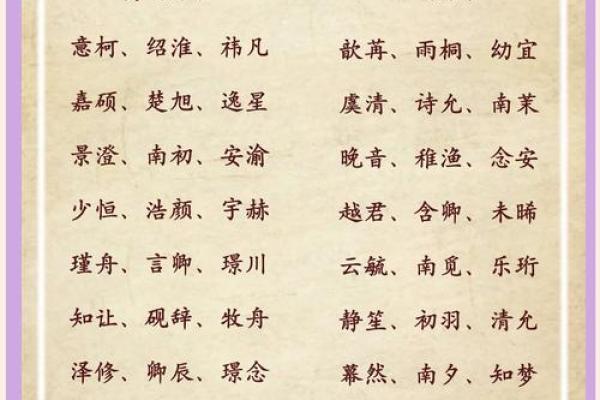 意柯、绍淮、祎凡
嘉硕、楚旭、逸星
景澄、南初、安渝
少恒、浩颜、宇赫
瑾舟、言卿、璟川
知让、砚辞、牧舟
泽修、卿辰、璟念
歆苒、雨桐、幼宜
虞清、诗允、南茉
晚音、稚渔、念安
越君、含卿、未晞
云毓、南觅、乐珩
静笙、初羽、清允
暮然、南夕、知梦